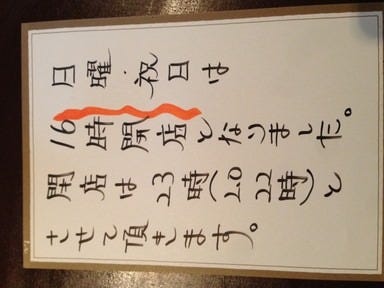 日曜・祝日は
16時開店となりました。
閉店は23時(L.O 22時)と
させて頂きます。